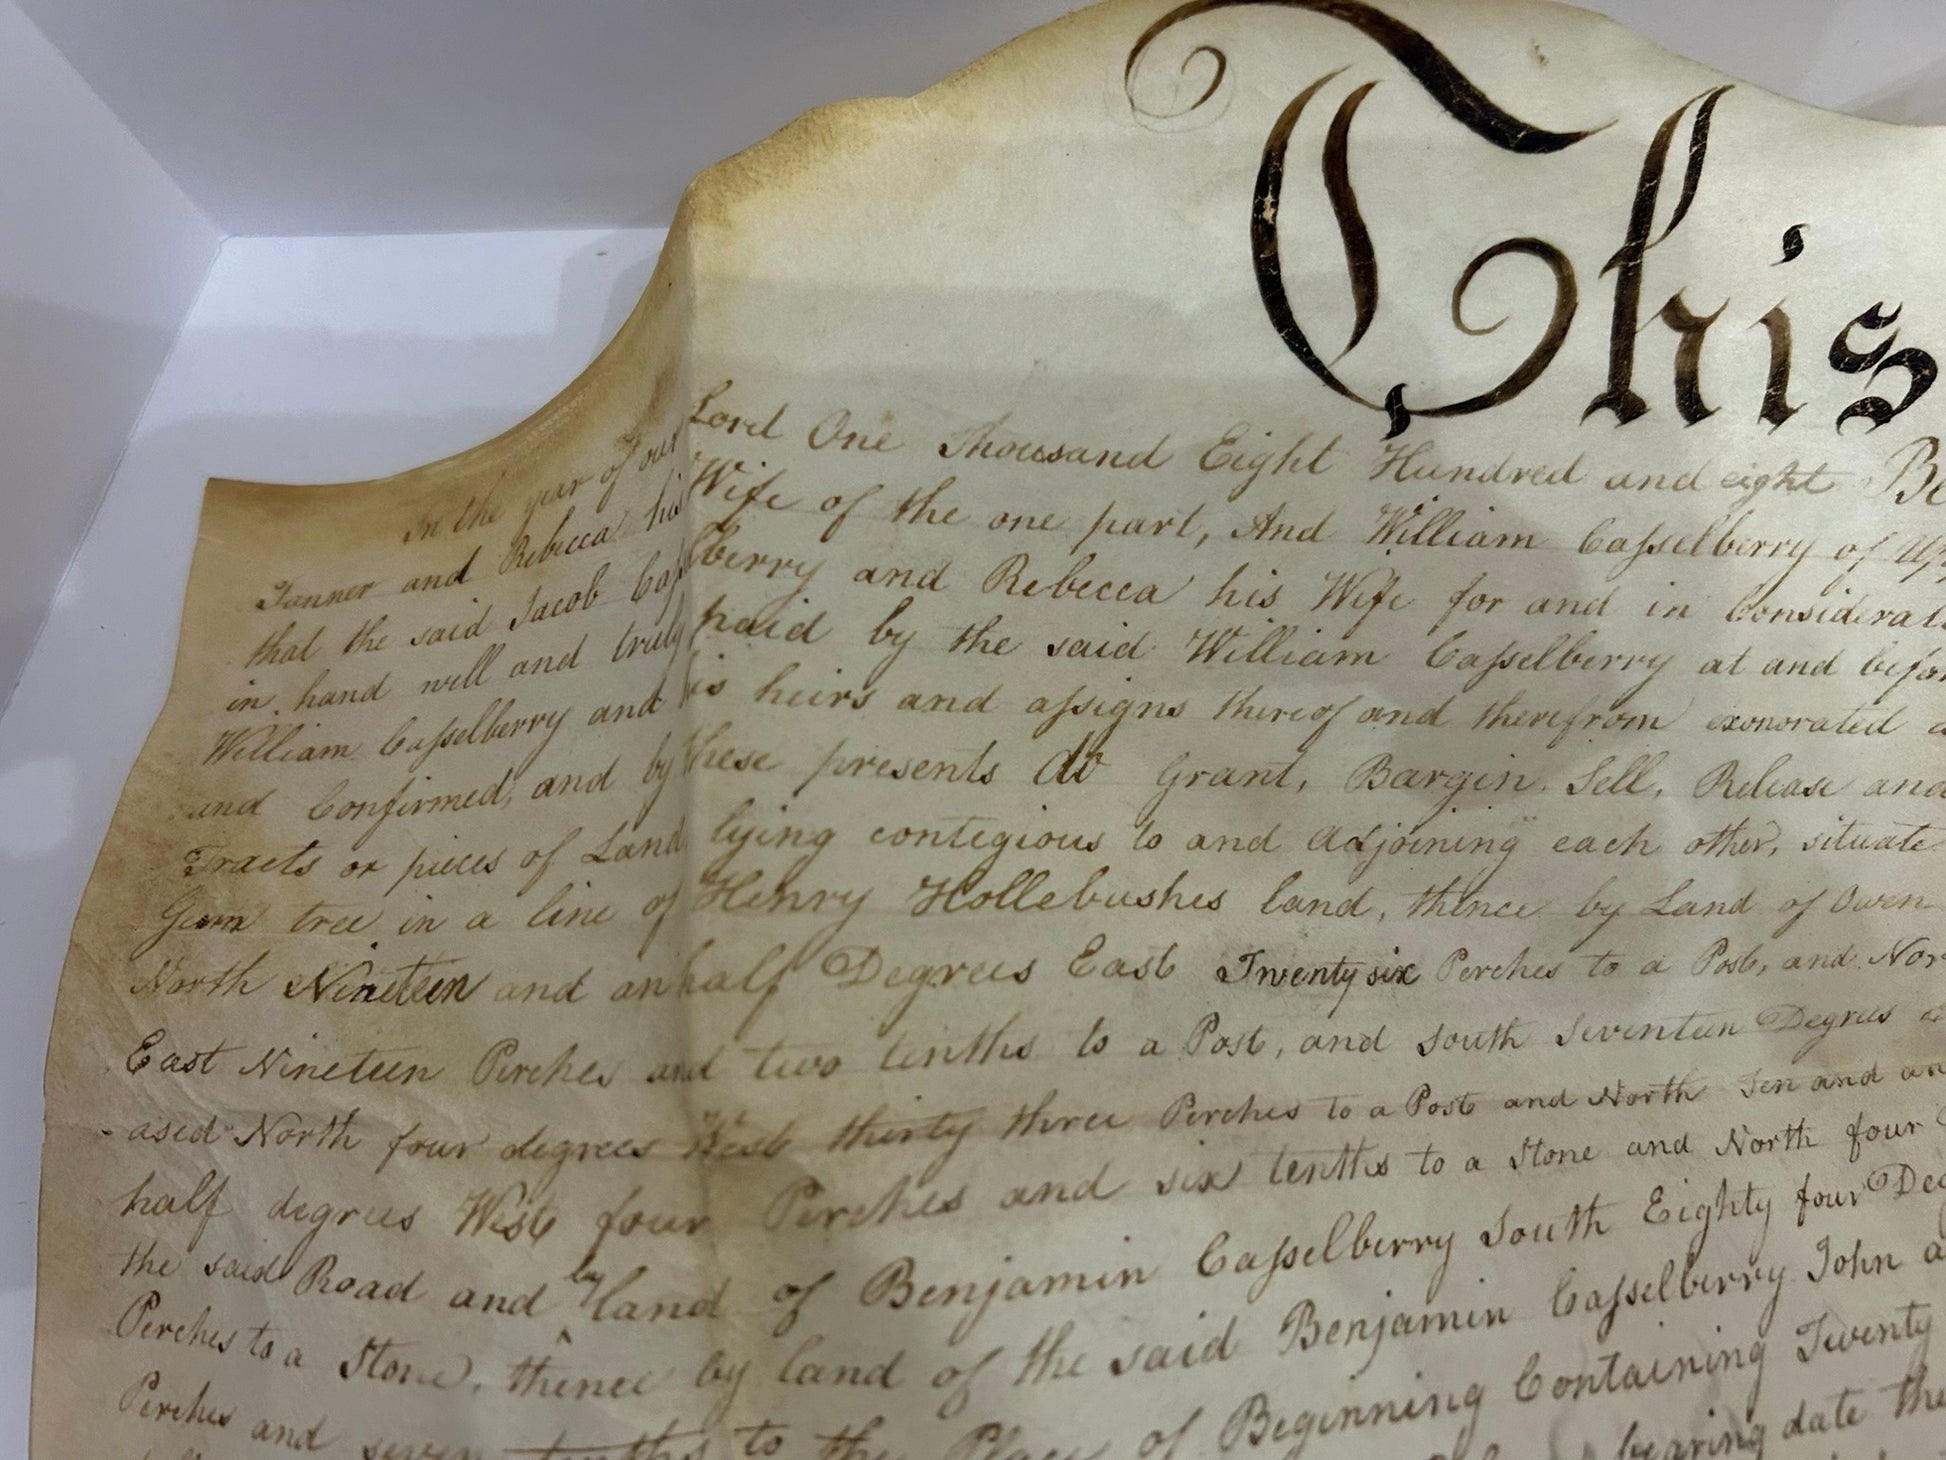 This
In the year of our Lord One Thousand Eight Hundred and eight Be
Tanner and Rebecca his Wife of the one part, And William Casselberry of Upp
that the said Jacob Casselberry and Rebecca his Wife for and in Considerat
in hand well and truly paid by the said William Casselberry at and befor
William Casselberry and his heirs and assigns thereof and therefrom exonorated a
and Confirmed, and by these presents do Grant, Bargin, Sell, Release and
Tracts or pieces of Land lying contegious to and Adjoining each other, situate
Gum tree in a line of Henry Hollebushes land, thence by Land of Owen
North Nineteen and an half Degrees East Twenty six Perches to a Post, and Nor
East Nineteen Perches and two tenths to a Post, and South Seventeen Degrees
ased North four degrees West thirty three Perches to a Post and North Ten and an
half degrees West four Perches and six tenths to a Stone and North four
the said Road and by land of Benjamin Casselberry South Eighty four Deg
Perches to a Stone, thence by land of the said Benjamin Casselberry John a
Perches and seven tenths to the Place of Beginning Containing Twenty
bearing date the